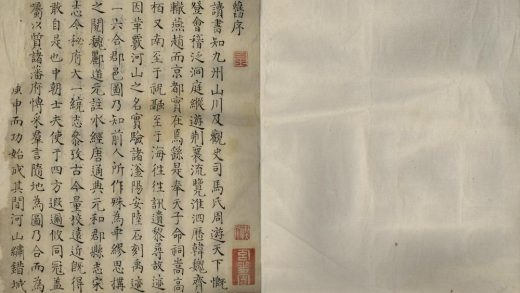 舊序
讀書知九州山川及觀史司馬氏周遊天下慨
登會稽泛洞庭縱遊荆襄流覽淮泗歷韓魏齊
轍燕趙而京都實在焉繇是奉天子命祠嵩高
栢又南至于祝融至于海往往訊遺黎尋故迹
因革覈河山之名實驗諸滏陽安陸石刻禹迹
一六合郡邑圖乃知前人所作殊為乖謬思搆
之閱魏酈道元註水經唐通典元和郡縣志宋
志今秘府大一統志參攷古今量挍遠近既得
敢自是也中朝士夫使于四方遐邇攸同冠蓋
囑以質諸藩府博采羣言隨地為圖乃合而為
庚申而功始成其間河山繡錯城